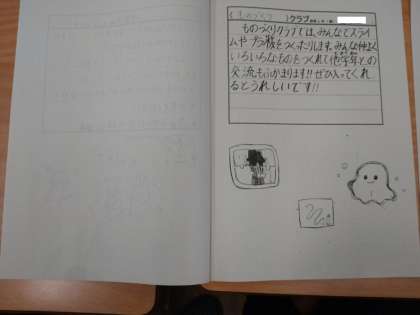 (ものづくり)クラブ
ものづくりクラブでは、みんなでスライ
ムや プラ板をつくったりします。みんな仲よく
いろいろなものをつくれて他学年との
交流もふかまります!!ぜひ入ってくれ
るとうれしいです!!